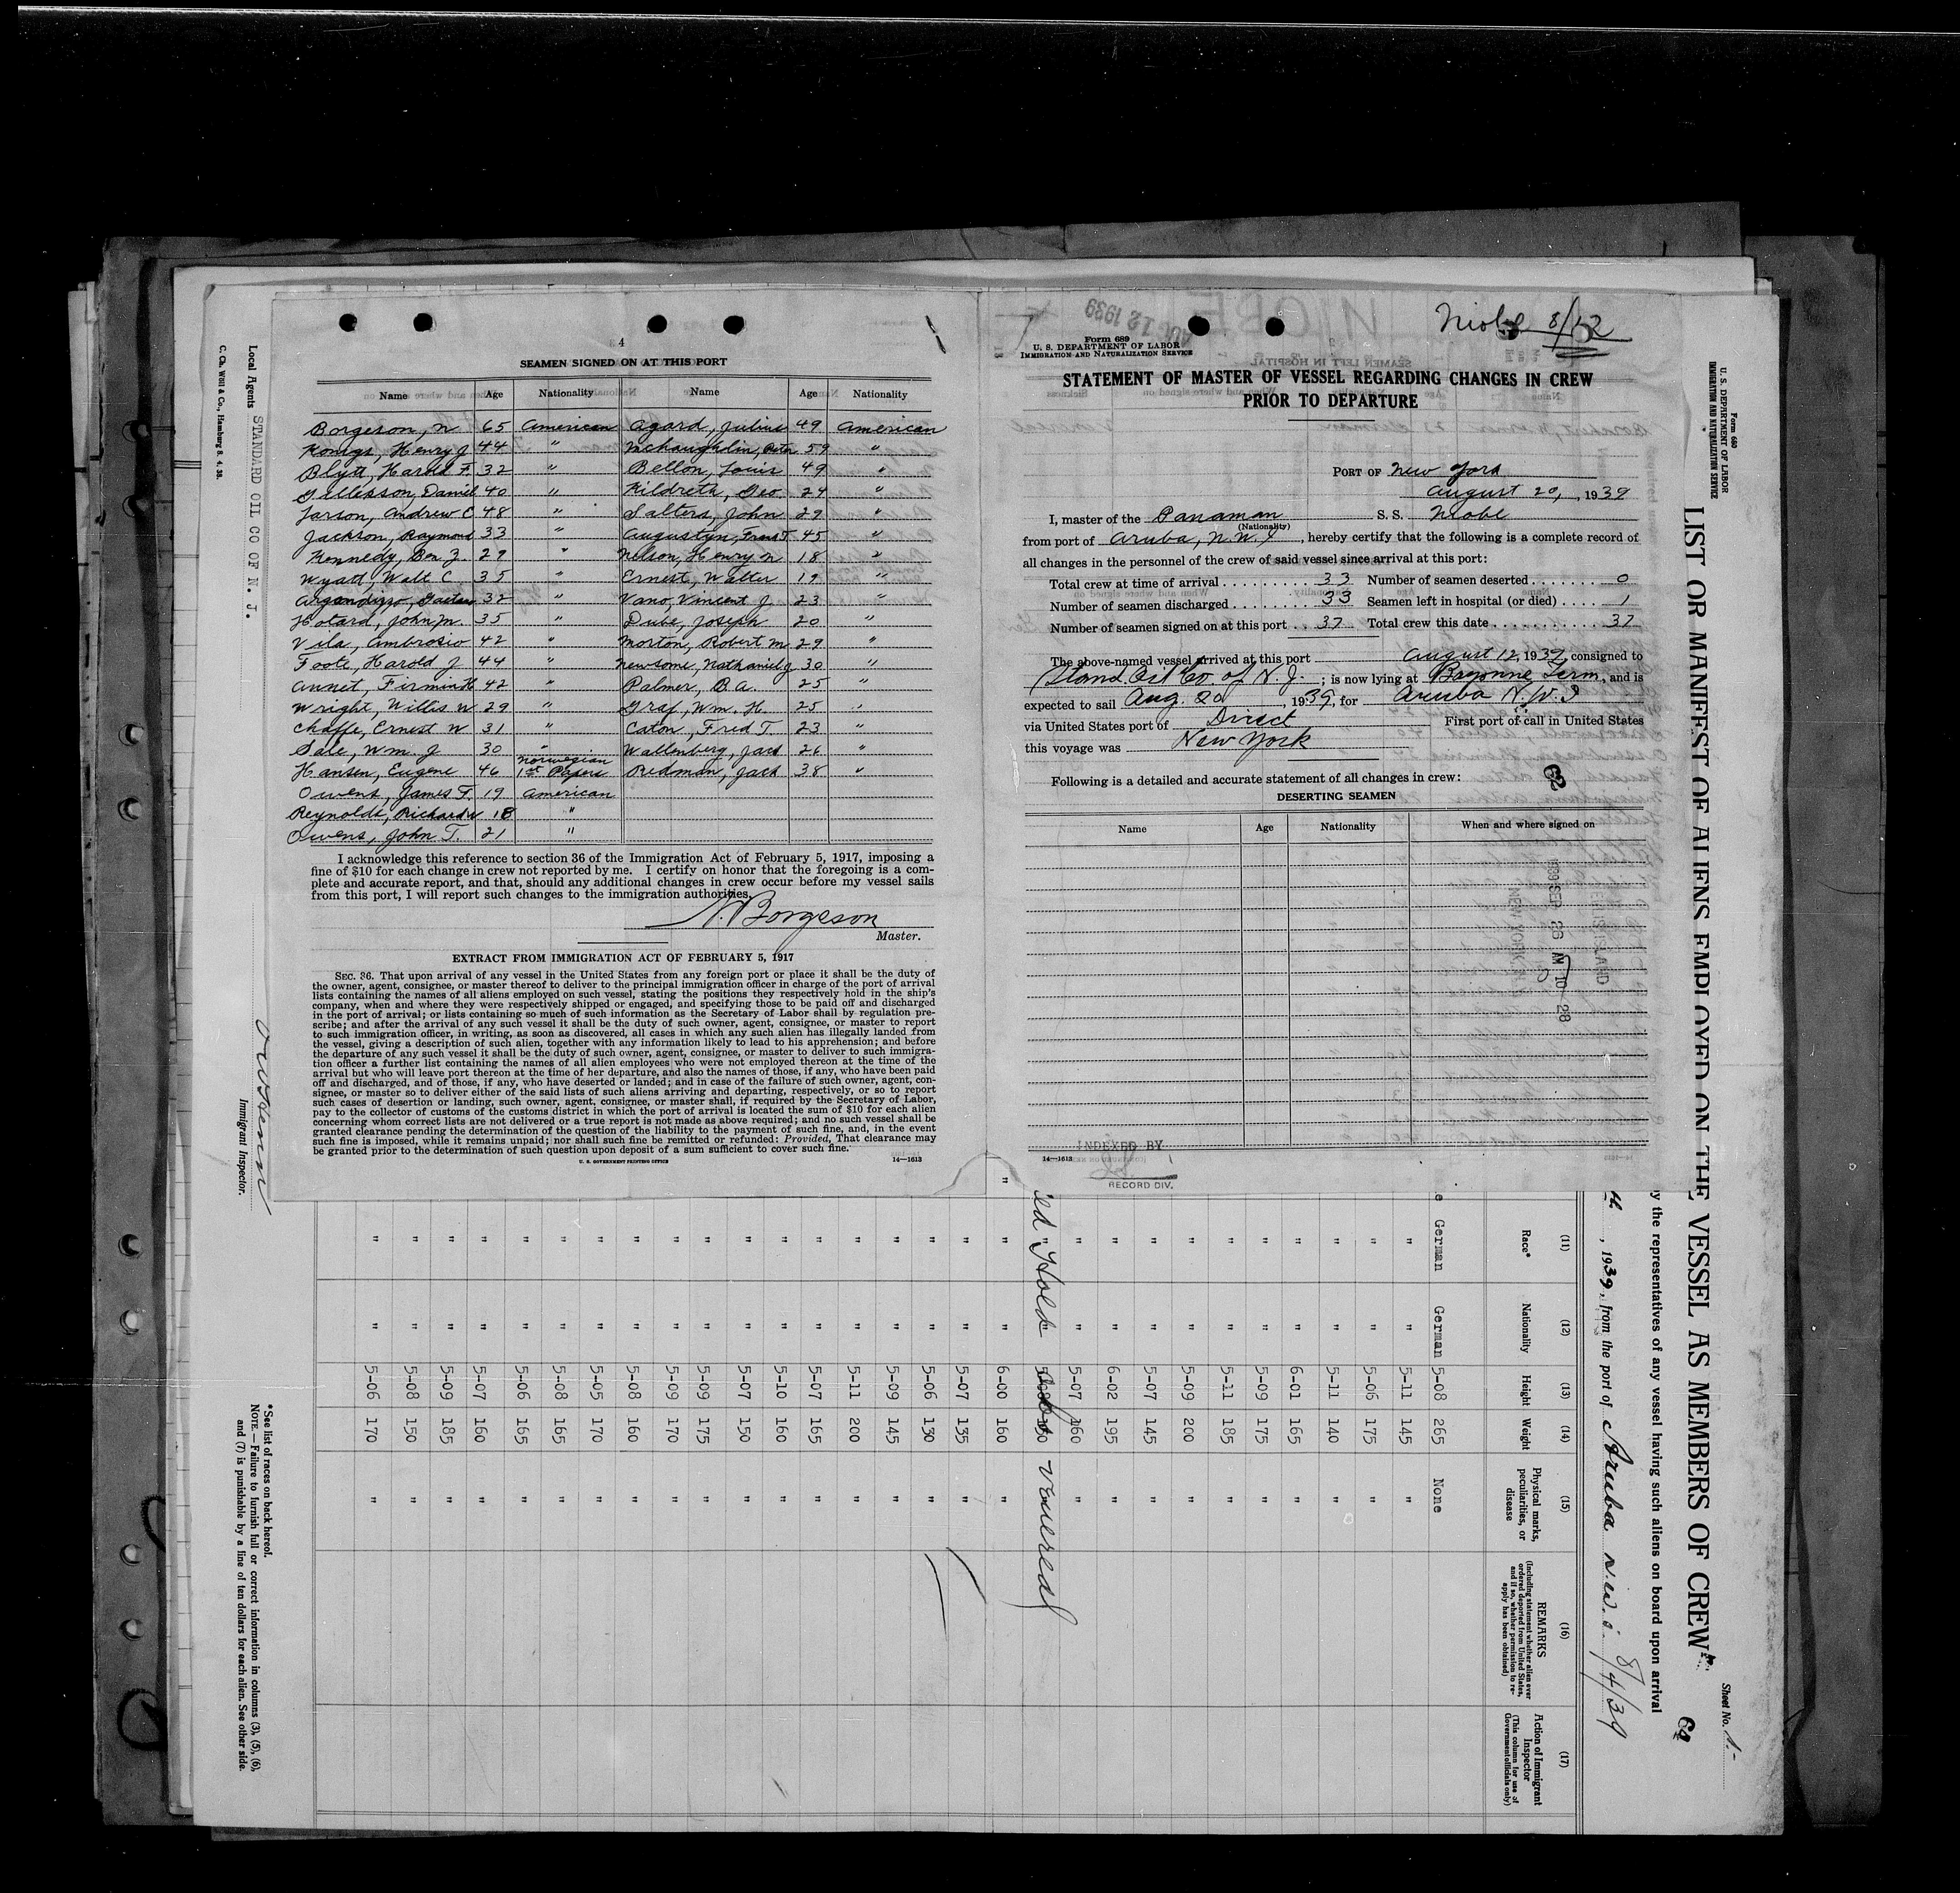 4
SEAMEN SIGNED ON AT THIS PORT
Name Age Nationality Name Age Nationality
Borgeson, N 65 American Agard, Julius 49 American
Konigs, Henry J 44 " McLaughlin, Peter 59 "
Blytt, Harold F. 32 " Bellon, Louis 49 "
Gulleksson, Daniel 40 " Hildreth, Geo. 24 "
Larson, Andrew C 48 " Salters, John 29 "
Jackson, Raymond 33 " Augustyn, Frans T. 45 "
Kennedy, Ben Z. 29 " Nelson, Henry N 18 "
Wyatt, Walt C. 35 " Ernest, Walter 19 "
Argendizzo, Gaetano 32 " Vano, Vincent J. 23 "
Hotard, John M. 35 " Dube, Joseph 20 "
Vila, Ambrosio 42 " Morton, Robert M 29 "
Foote, Harold J 44 " Newsome, Nathaniel J 30 "
Annet, Firmin H 42 " Palmer, B.A. 25 "
Wright, Willis W 29 " Graf, Wm. H. 25 "
Chaffe, Ernest W 31 " Eaton, Fred T. 23 "
Sale, Wm. J 30 " Wallenberg, Jack 26 "
Hansen, Eugene 46 Norwegian 1st Papers Redman, Jack 38 "
Owens, James F. 19 American
Reynolds, Richard W 18 "
Owens, John T. 21 "
I acknowledge this reference to section 36 of the Immigration Act of February 5, 1917, imposing a
fine of $10 for each change in crew not reported by me. I certify on honor that the foregoing is a com-
plete and accurate report, and that, should any additional changes in crew occur before my vessel sails
from this port, I will report such changes to the immigration authorities.
N. Borgeson
Master.
EXTRACT FROM IMMIGRATION ACT OF FEBRUARY 5, 1917
SEC. 36. That upon arrival of any vessel in the United States from any foreign port or place it shall be the duty of
the owner, agent, consignee, or master thereof to deliver to the principal immigration officer in charge of the port of arrival
lists containing the names of all aliens employed on such vessel, stating the positions they respectively hold in the ship's
company, when and where they were respectively shipped or engaged, and specifying those to be paid off and discharged
in the port of arrival; or lists containing so much of such information as the Secretary of Labor shall by regulation pre-
scribe; and after the arrival of any such vessel it shall be the duty of such owner, agent, consignee, or master to report
to such immigration officer, in writing, as soon as discovered, all cases in which any such alien has illegally landed from
the vessel, giving a description of such alien, together with any information likely to lead to his apprehension; and before
the departure of any such vessel it shall be the duty of such owner, agent, consignee, or master to deliver to such immigra-
tion officer a further list containing the names of all alien employees who were not employed thereon at the time of the
arrival but who will leave port thereon at the time of her departure, and also the names of those, if any, who have been paid
off and discharged, and of those, if any, who have deserted or landed; and in case of the failure of such owner, agent, con-
signee, or master so to deliver either of the said lists of such aliens arriving and departing, respectively, or so to report
such cases of desertion or landing, such owner, agent, consignee, or master shall, if required by the Secretary of Labor,
pay to the collector of customs of the customs district in which the port of arrival is located the sum of $10 for each alien
concerning whom correct lists are not delivered or a true report is not made as above required; and no such vessel shall be
granted clearance pending the determination of the question of the liability to the payment of such fine, and, in the event
such fine is imposed, while it remains unpaid; nor shall such fine be remitted or refunded: Provided, That clearance may
be granted prior to the determination of such question upon deposit of a sum sufficient to cover such fine.
U. S. GOVERNMENT PRINTING OFFICE
14—1613
Niobe 8/12
AUG 12 1939
Form 689
U. S. DEPARTMENT OF LABOR
IMMIGRATION AND NATURALIZATION SERVICE
STATEMENT OF MASTER OF VESSEL REGARDING CHANGES IN CREW
PRIOR TO DEPARTURE
PORT OF New York
August 20, 1939
I, master of the Panaman S. S. Niobe
(Nationality)
from port of Aruba, N.W.I, hereby certify that the following is a complete record of
all changes in the personnel of the crew of said vessel since arrival at this port:
Total crew at time of arrival 33 Number of seamen deserted 0
Number of seamen discharged 33 Seamen left in hospital (or died) 1
Number of seamen signed on at this port 37 Total crew this date 37
The above-named vessel arrived at this port August 12, 1939, consigned to
Stand. Oil Co. of N. J. ; is now lying at Bayonne Term, and is
expected to sail Aug. 20, 1939, for Aruba N.W.I
via United States port of Direct First port of call in United States
this voyage was New York
Following is a detailed and accurate statement of all changes in crew: 62
DESERTING SEAMEN
Name Age Nationality When and where signed on
1939 SEP 26 AM 10 28
ELLIS ISLAND
NEW YORK
INDEXED BY
RECORD DIV.
14—1613
Local Agents STANDARD OIL CO OF N. J.
C. Ch. Wöll & Co., Hamburg 8. 4. 38.
Immigrant Inspector.
Form 680
U. S. DEPARTMENT OF LABOR
IMMIGRATION AND NATURALIZATION SERVICE
LIST OR MANIFEST OF ALIENS EMPLOYED ON THE VESSEL AS MEMBERS OF CREW
Sheet No. 1.-
62
by the representatives of any vessel having such aliens on board upon arrival
, 1939, from the port of Aruba N.W.I. 8/4/39
(11) (12) (13) (14) (15) (16) (17)
Race* Nationality Height Weight Physical marks, peculiarities, or disease REMARKS (Including statement whether alien ever ordered deported from United States, and if so, whether permission to re-apply has been obtained) Action of Immigrant Inspector (This column for use of Government officials only)
German German 5-08 265 None
" " 5-11 145 "
" " 5-06 175 "
" " 5-11 140 "
" " 6-01 165 "
" " 5-09 175 "
" " 5-11 185 "
" " 5-09 200 "
" " 5-07 145 "
" " 6-02 195 "
" " 5-07 160 "
Hold venereal
" " 6-00 160 "
" " 5-07 135 "
" " 5-06 130 "
" " 5-09 145 "
" " 5-11 200 "
" " 5-07 165 "
" " 5-10 160 "
" " 5-07 150 "
" " 5-09 175 "
" " 5-09 170 "
" " 5-08 160 "
" " 5-05 170 "
" " 5-08 165 "
" " 5-06 165 "
" " 5-07 160 "
" " 5-09 185 "
" " 5-08 150 "
" " 5-06 170 "
*See list of races on back hereof.
NOTE.—Failure to furnish full or correct information in columns (3), (5), (6),
and (7) is punishable by a fine of ten dollars for each alien. See other side.